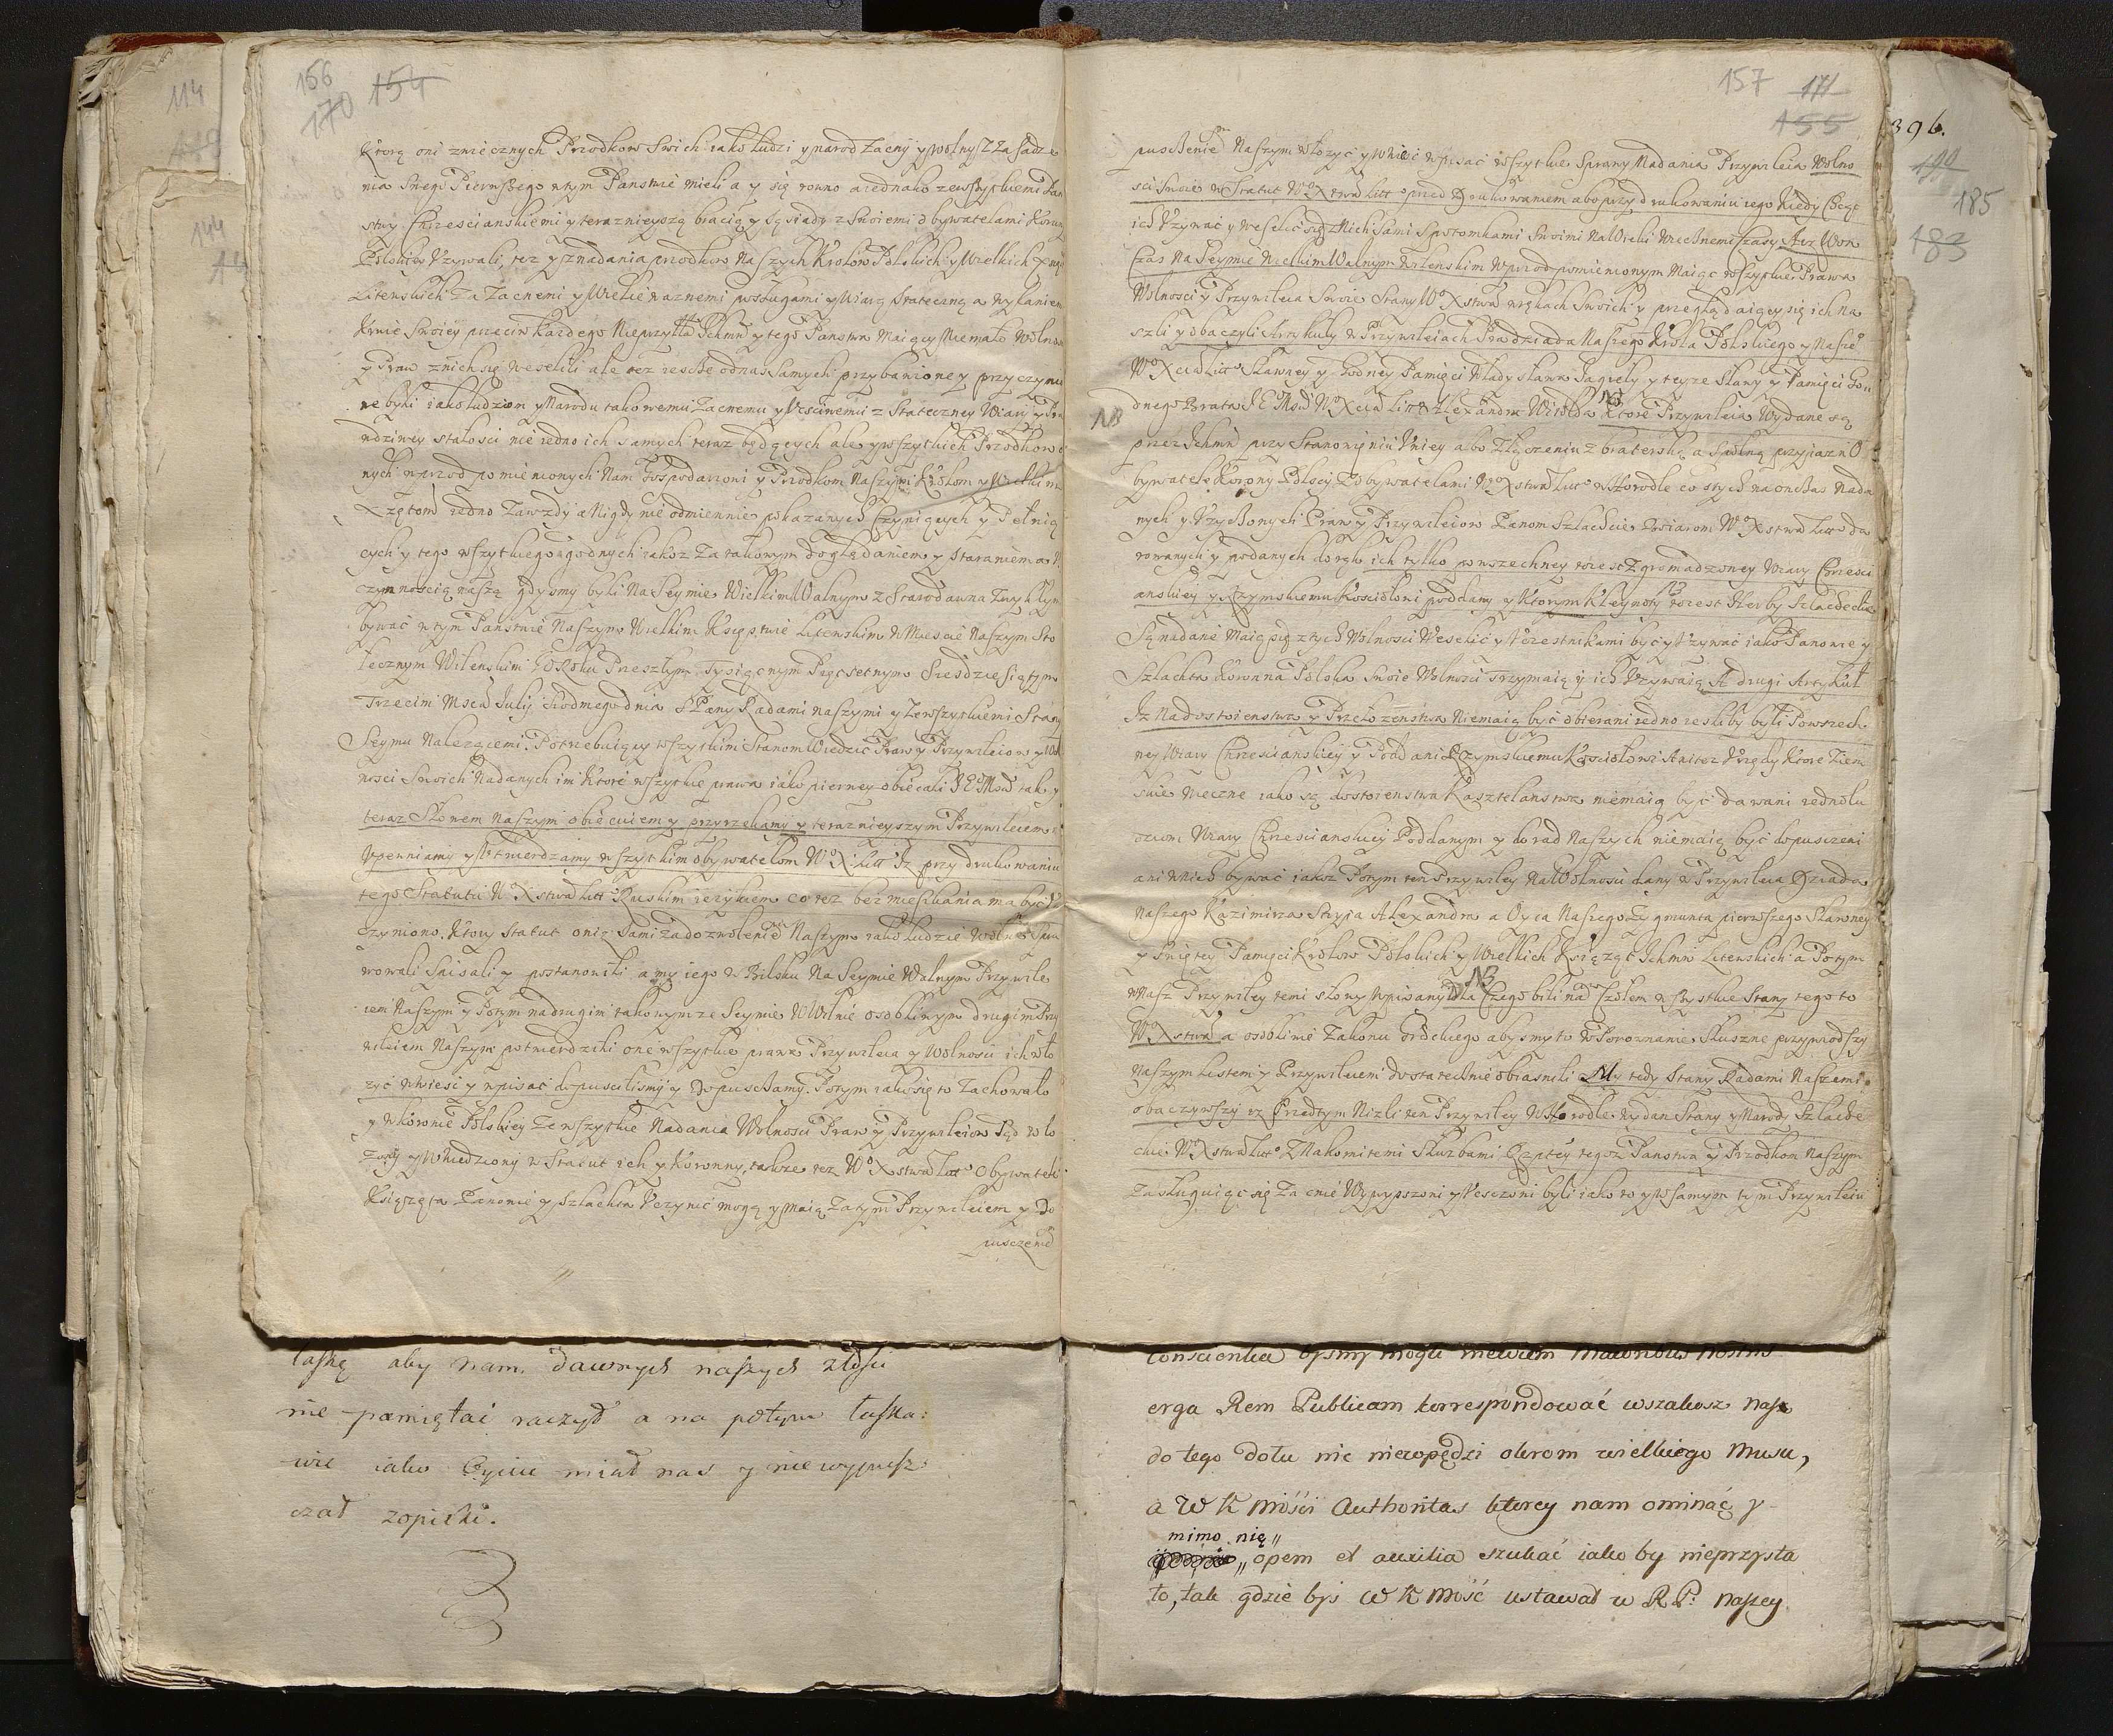 156 154
170
Ktorą oni zwiecznych Przodkow Swich iako Ludzi y narod Zacny y wolny Z Zasadze
nia Snego Pierwszego wtym Panstwie mieli a y się rowno a iednako zewszytkiemi Pan
stwy Chrzescianskiemi y teraznieyszą bracią y Sąsiady z Swoiemi obywatelami Korony
Polskiey Vzywali, tez y znadania przodkow Naszych Krolow Polskich y Wielkich Xiąząt
Litewskich Za Zacnemi y Wielie waznemi posługami y Wiarą Stateczną a wylaniem
Krwie Swoiey przeciw kazdego Nieprzyla Ichmw y tego Panstwa Maiący Niemało Wolnos
y Praw znich się weselili ale tez iescze odnas Samych przybawioney przyczyni
ne byli iako ludziom y Narodu takowemu Zacnemu y Vczciwemu z Stateczney Wiary y Pra
wdziwey stałosci nie iedno ich samych teraz będących ale y wszytkich Przodkow
nych wprzod pomienionych Nam Gospodarowi y Przodkom Naszym Krolom y Wielkim
Xzętom iedno Zawzdy a Nigdy nie odmiennie pokazanych Czyniących y Pełnią
cych y tego wszytkiego godnych iakoz Za takowym doglądaniem y Staraniem a
czynnoscią naszą gdysmy byli Na Seymie Wielkim Walnym z Starodawna Zwykłym
bywać wtym Panstwie Naszym Wielkim Xięstwie Litewskim w Miescie Naszym Sto
łecznym Wilenskim Roku Przeszłym Tysiącnym Pięcsetnym Szesdziesiątym
Trzecim Mscā Julij siodmego dnia S Pany Radami naszymi y Zewszytkiemi Stany
Seymu Nalezącemi. Potrzebuiący wszytkim Stanom Wiedzić Praw y Przywileiow y Wol
nosci Swoich Nadanych im Ktore wszytkie prawa iako pierwey obiecali JEMsc tak y
teraz Słowem Naszym obiecuiemy przyrzekamy y teraznieyszym Przywileiem
Vpewniamy y Vtwierdzamy wszytkim obywatelom W° X Litt° Iz przy drukowaniu
tego Statutu W° Xstwa Litt° Ruskim ięzykiem co tez bez mieszkania ma być V
czyniono. Ktory Statut oni Sami za dozwoleniē Naszym iako ludzie Wolni Spra
wowali Spisali y postanowili a my iego w Bilsku Na Seymie Walnym Przywile
iem Naszym y Potym nadrugim takowymze Seymie w Wilnie osobliwym drugim Przy
wileiem Naszym potwierdzili one wszytkie prawa Przywileia y Wolnosci ich wło
zyć wniesi y wpisać dopuscilismy y Dopusczamy. Potym iako się to Zachowało
y w Koronie Polskiey Ze wszytkie Nadania Wolnosci Praw y Przywileiow Są wło
zony y Wniedziony w Statut ich y Koronny, takze tez W° Xstwa Litt° Obywatele
Xiązęta Panowie y Szlachta Vczynic mogą y maią Za tym Przywileiem y Do
pusczeniē
łaskę aby nam. dawnych naszych złosci
nie pamiętać raczył a na potym łaska:
wie iako Oyciec miał nas y nie wypusz
czał zopieki.
157 171
155
pusczeniē Naszym włozyć y wnieć wpisać wszytkie Sprawy Nadania Przywileia Wolno
sci Swoie w Statut W° Xstwa Litt° przed Drukowaniem abo przy drukowaniu iego Kiedy Chcąc
ich Vzywać y weselic się z Nich Sami Spotomkami Swoimi Na Wieki Wiecznemi Czasy A iz Won
Czas Na Seymie Wielkim Walnym Wilenskim Wprzod pomienionym Maiąc wszytkie Prawa
Wolnosci y Przywileia Swoie Stany W° Xstwa wrękach Swoich y przeglądaiący się ich Na
szli y obaczyli Artykuły w Przywileiach Pradziada Naszego Krola Polskiego y Naszē
W° Xcia Litt° Sławney y Godney Pamięci Władysława Jagieły y teyze Sławy y Pamięci Go
NB dnego Brata JEMsci W° Xcia Litt° Alexandra Witolda NB Ktore Przywileia Wydane są
przez Ichmw przy Stanowieniu Vniey abo Złączeniu z braterską a Spolną przyiazni O
bywatele Korony Polsciey Z obywatelami W° Xstwa Litt° w Horodle co stych na onczas Nada
nych y Vzyczonych Praw y Przywileiow Panom Szlachcie Boiarom W° Xstwa Litt° Da
rowanych y podanych do ręk ich tylko powszechney toiest Zgromadzoney Wiary Chrzesci
anskiey y Rzymskiemu Kosciołowi poddany y Ktorym Kleynoty NB toiest Herby Szlacheckie
Są nadane Maią się z tych Wolnosci Weselić y Vczestnikami być y Vzywać iako Panowie y
Szlachta Koronna Polska Swoie Wolnosci Trzymaią y ich Vzywaią A drugi Artykuł
Iz Na dostoienstwa y Przełozenstwa Niemaią być obierani iedno iesliby byli Powszech
ney Wiary Chrzescianskiey y Poddani Rzymskiemu Kosciołowi Ani tez Vrzędy Ktore Ziem
skie Wieczne iako są dostoienstwa Kasztelanstwa niemaią być dawani iedno lu
dziom Wiary Chrzescianskiey Poddanym y do rad Naszych niemaią być dopusczeni
ani wnich bywać iakoz Potym ten Przywiley Na Wolnosci dany w Przywileia Dziada
Naszego Kazimirza Stryia Alexandra a Oyca Naszego Zygmunta pierwszego Sławney
y Swiętey Pamięci Krolow Polskich y Wielkich Xiąząt Ichmw Litewskich a Potym
w Nasz Przywiley temi słowy wpisany NB dla Czego bili nam Czołem wszytkie Stany tego to
W° Xstwa a osobliwie Zakonu Grēckiego abysmy to w Porownanie Słuszne przywiodszy
Naszym Listem y Przywileiem dostatecznie obiasnili My tedy Stany Radami Naszemi
obaczywszy iz Przedtym Nizli ten Przywiley w Horodle wydan Stany y Narody Szlache
ckie W° Xstwa Litt° Z Nakomitemi Słuzbami Rzptey tegoz Panstwa y Przodkom Naszym
Zasługuiąc się Zacnie Wywyzszoni y Vczczoni byli iako to y w samym tym Przywileiu
conscientia bysmy mogli mewiem maioribus nostris
erga Rem Publicam korrespondować wszakosz nasz
do tego dołu nic niewpędzi okrom wielkiego musu,
a W K Mości Authoritas ktorey nam ominąć y
mimo nię„
„opem et auxilia szukać iako by nieprzysta
to, tak gdzie byś W K Mość ustawał w R P: naszey
396.
199
185
183
114
144